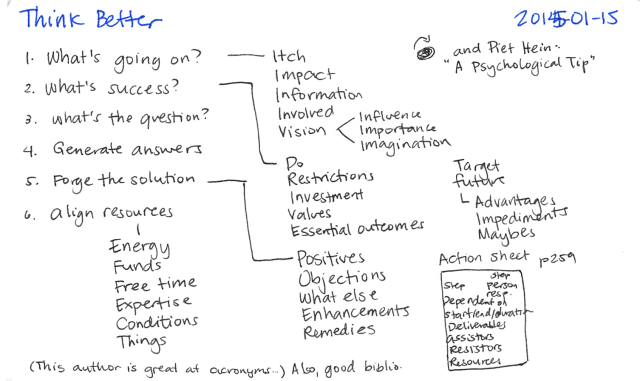 Think Better
2015-01-15
1. What's going on?
2. What's success?
3. What's the question?
4. Generate answers
5. Forge the solution
6. align resources
Energy
Funds
Free time
Expertise
Conditions
Things
Itch
Impact
Information
Involved
Vision
Influence
Importance
Imagination
Do
Restrictions
Investment
Values
Essential outcomes
Positives
Objections
What else
Enhancements
Remedies
and Piet Hein:
"A Psychological Tip"
Target
future
Advantages
Impediments
Maybes
Action sheet p259
Step
step
person
resp.
Dependent on
start/end/duration
Deliverables
assistors
Resistors
Resources
(This author is great at acronyms...) Also, good biblio.